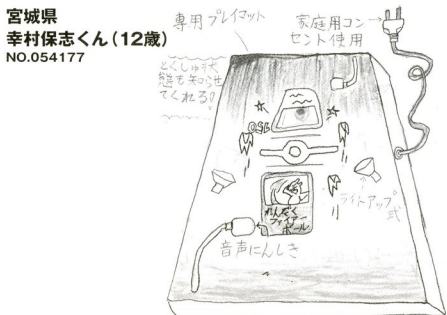 宮城県
幸村保志くん(12歳)
NO.054177
専用プレイマット
家庭用コン
セント使用
とくしゅ状
態も知らせ
てくれる!
ライトアップ
式
れんぞく
ファイアー
ボール
音声にんしき